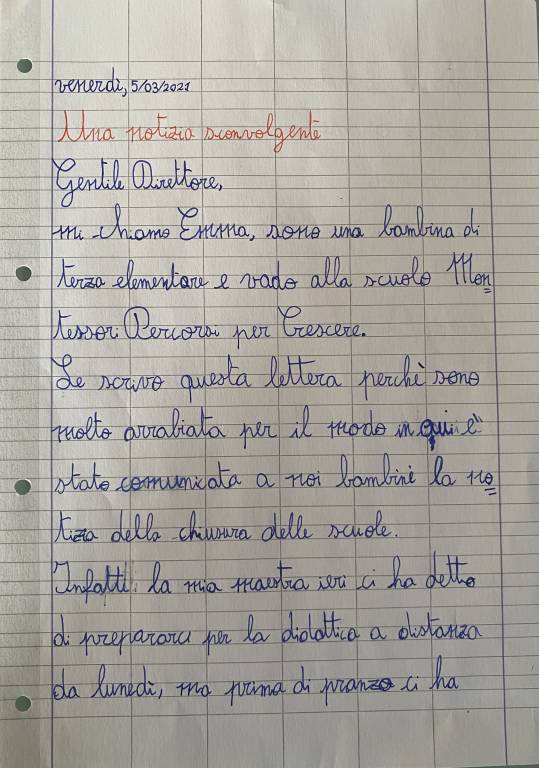 venerdì, 5/03/2021
Una notizia sconvolgente
Gentile Direttore,
mi chiamo Emma, sono una bambina di
terza elementare e vado alla scuola Mon
tessori Percorsi per Crescere.
Le scrivo questa lettera perchè sono
molto arrabiata per il modo in qui è
stata comunicata a noi bambini la no
tizia della chiusura delle scuole.
Infatti la mia maestra ieri ci ha detto
di prepararci per la didattica a distanza
da lunedì, ma prima di pranzo ci ha